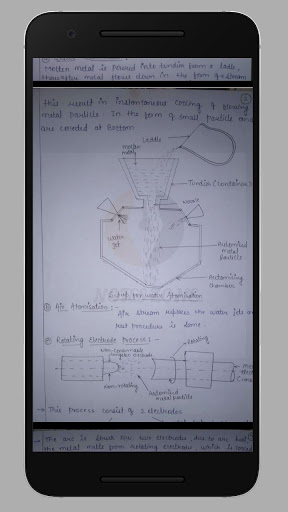 Molten metal is poured into tundis from a ladle,
metal flows down in the form of stream
This result in instantaneous cooling of flowing
metal particle. In the form of small particle and
are collected at Bottom
Laddle
molten
metal
Tundis (container)
water
jet
Automized
metal
Particles
Automizing
chamber
Set up for water Atomisation
Air Atomisation:-
Air stream replaces the water jets and
rest procedure is same.
Rotating Electrode Process:-
Non-consumable
Rotating
Non-rotating
Automized
metal particle
→ This process consist of 2 electrodes
→ The arc is struck b/w two electrode, due to arc heat
the metal melts from rotating electrode, which is